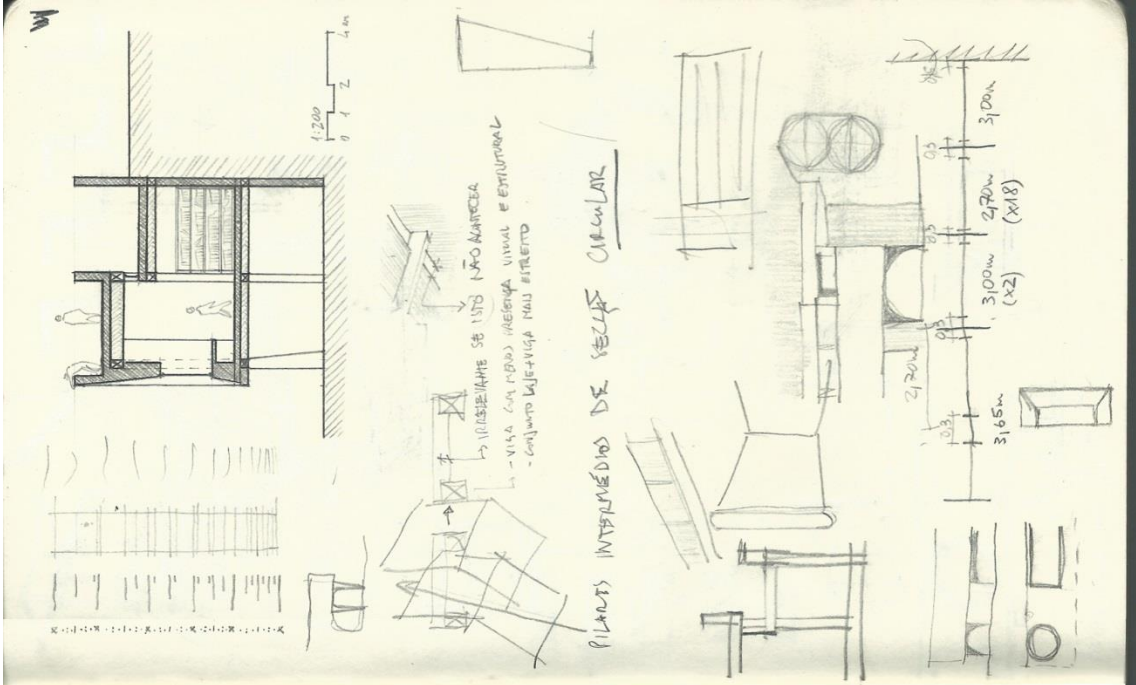 1:200
0 1 2 4m
IRRELEVANTE SE ISTO NÃO ACONTECER
- VIGA COM MENOS PRESENÇA VISUAL E ESTRUTURAL
- CONJUNTO LAJE+VIGA MAIS ESTREITO
PILARES INTERMÉDIOS DE SECÇÃO CIRCULAR
2,70m
0,3
3,65m
0,3
3,00m
(x2)
0,3
2,70m
(x18)
0,3
3,00m